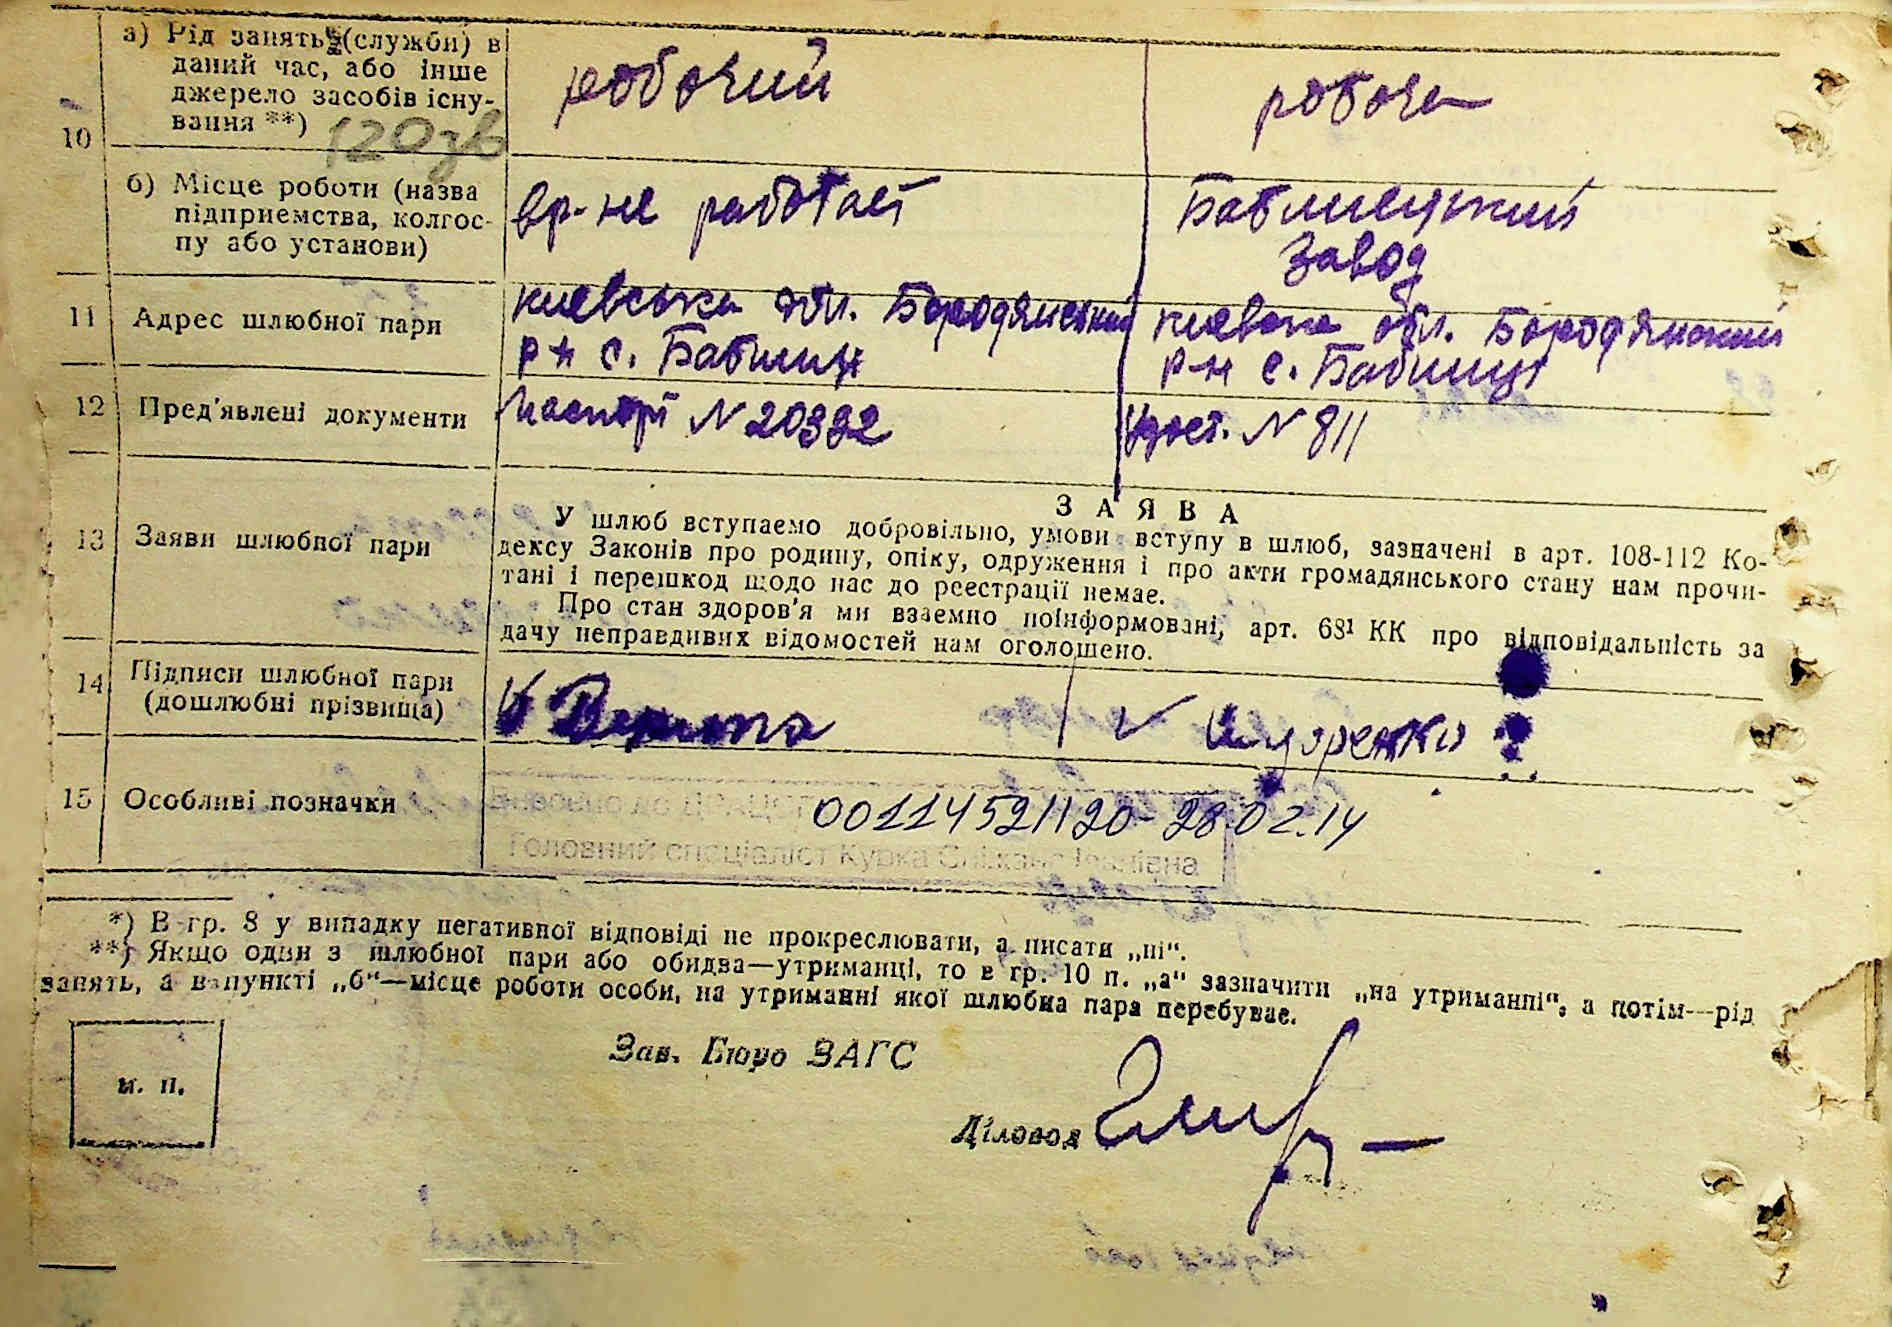 10
а) Рід занять (служби) в
даний час, або інше
джерело засобів існу-
вання **)
120зв
робочий
робоча
б) Місце роботи (назва
підприємства, колгос-
пу або установи)
вр. не работает
Бабинецький
завод
11
Адрес шлюбної пари
київська обл. Бородянський
р-н с. Бабинці
київська обл. Бородянский
р-н с. Бабинці
12
Пред'явлені документи
Паспорт N 20392
Удост. N 811
13
Заяви шлюбної пари
ЗАЯВА
У шлюб вступаємо добровільно, умови вступу в шлюб, зазначені в арт. 108-112 Ко-
дексу Законів про родину, опіку, одруження і про акти громадянського стану нам прочи-
тані і перешкод щодо нас до реєстрації немає.
Про стан здоров'я ми взаємно поінформовані, арт. 68¹ КК про відповідальність за
дачу неправдивих відомостей нам оголошено.
14
Підписи шлюбної пари
(дошлюбні прізвища)
15
Особливі позначки
00114521120 - 28.02.14
Головний спеціаліст Курка
*) В гр. 8 у випадку негативної відповіді не прокреслювати, а писати „ні“.
**) Якщо один з шлюбної пари або обидва—утриманці, то в гр. 10 п. „а“ зазначити „на утриманні“, а потім—рід
занять, а в пункті „б“—місце роботи особи, на утриманні якої шлюбна пара перебуває.
м. п.
Зав. Бюро ЗАГС
Діловод